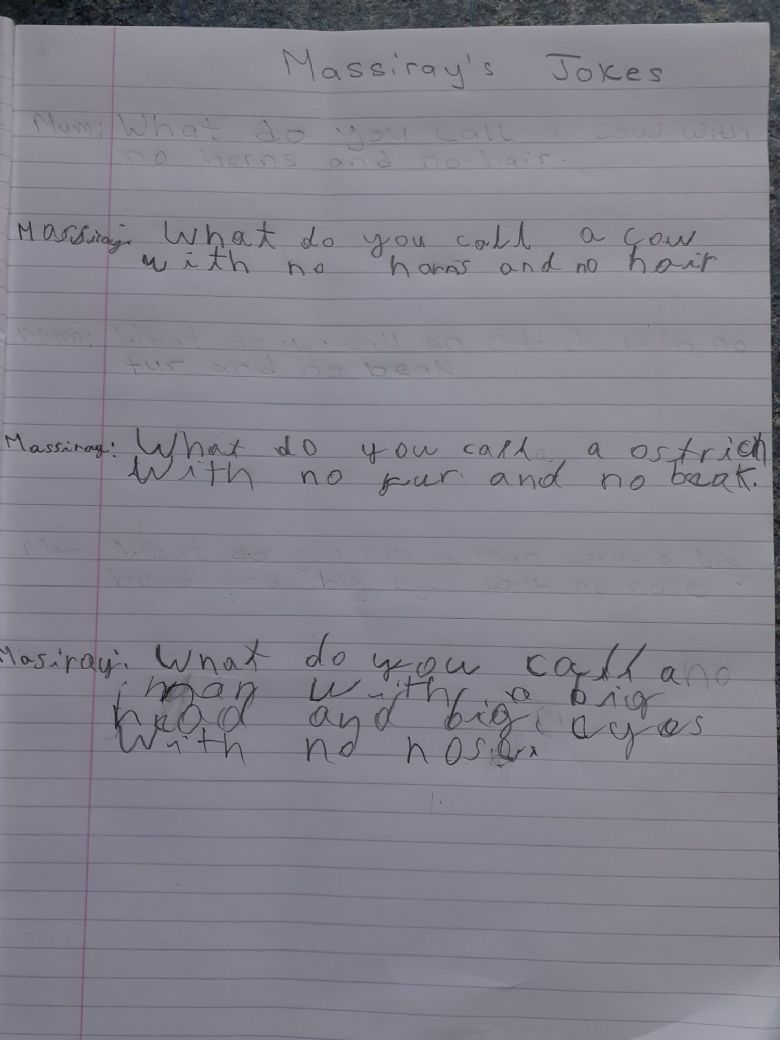 Massiray's Jokes
Mum: What do you call a cow with
no horns and no hair.
Massiray: What do you call a cow
with no horns and no hair
Mum: What do you call an ostrich with no
fur and no beak
Massiray: What do you call a ostrich
with no fur and no beak.
Mum: What do you call a man with a big
head and big eyes with no nose
Masiray: What do you call a
man with a big
head and big eyes
with no nose.